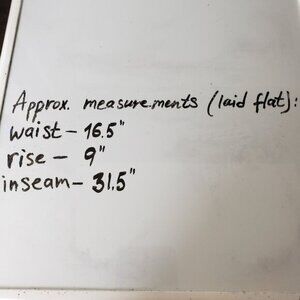 Approx. measurements (laid flat):
waist - 16.5"
rise - 9"
inseam - 31.5"